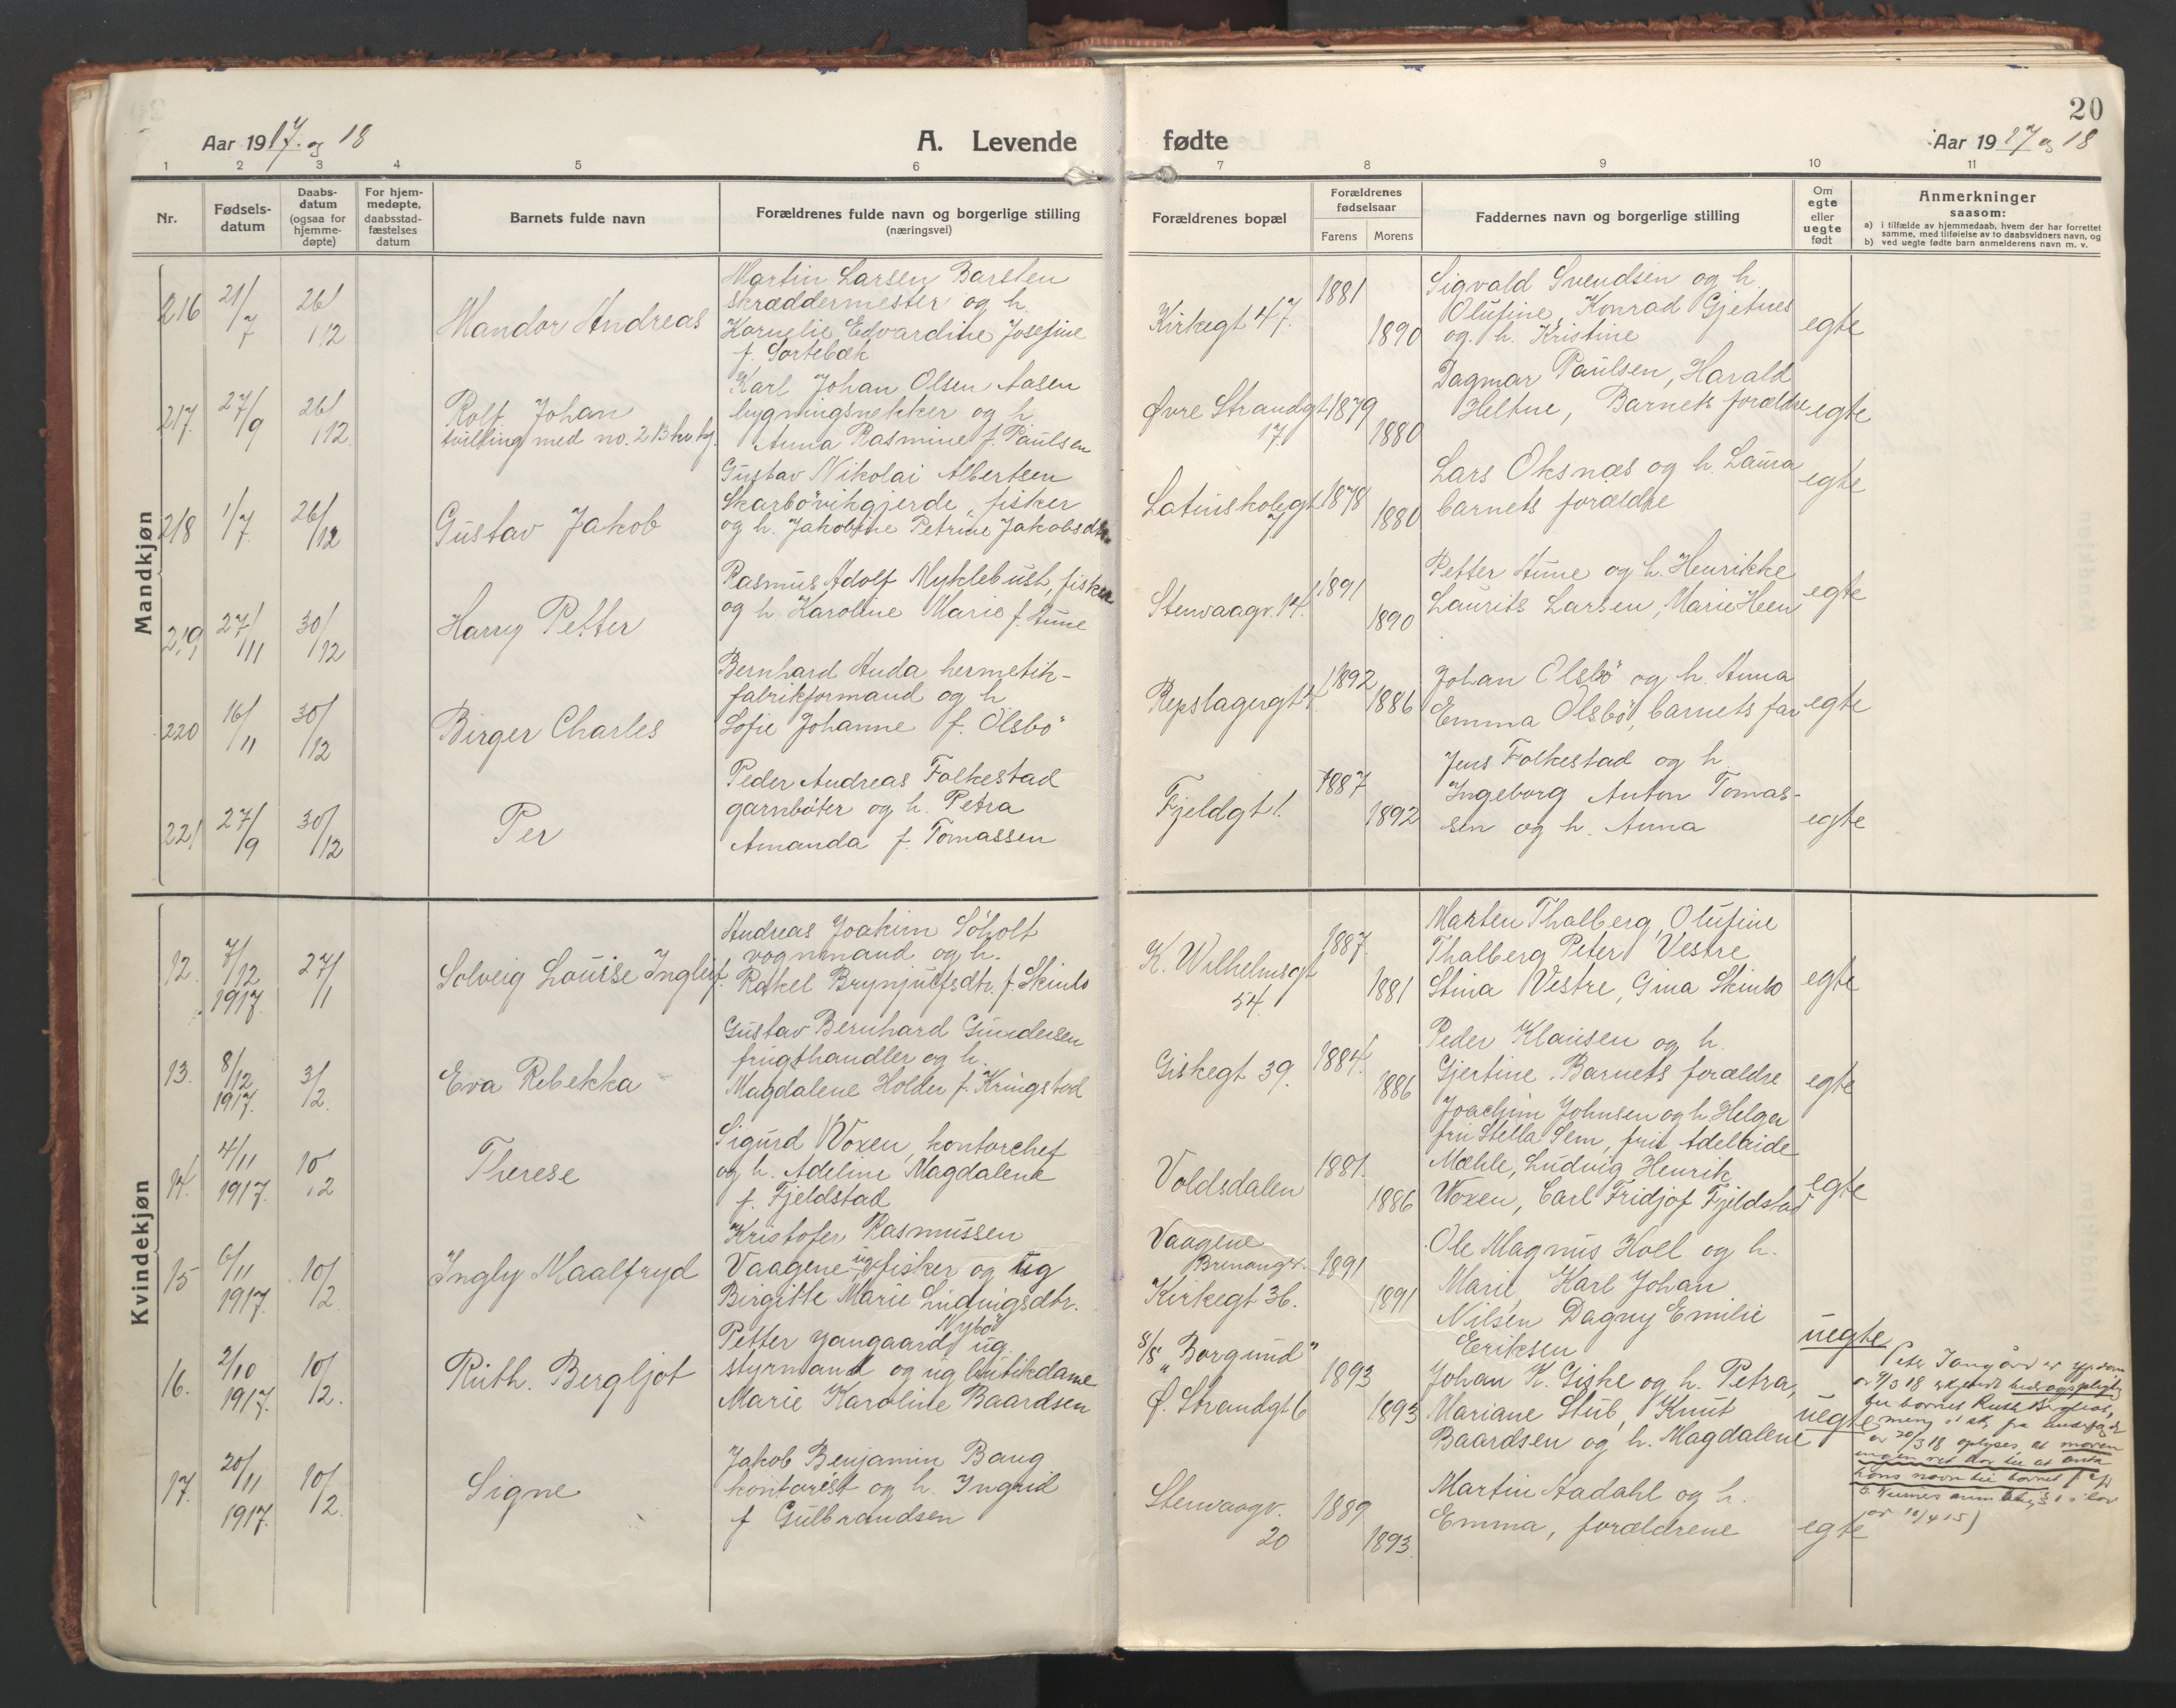 20
Aar 1917. og 18
A. Levende fødte
Aar 1917 og 18
1 2 3 4 5 6 7 8 9 10 11
Nr.
Fødsels-
datum
Daabs-
datum
(ogsaa for
hjemme-
døpte)
For hjem-
medøpte,
daabsstad-
fæstelses
datum
Barnets fulde navn
Forældrenes fulde navn og borgerlige stilling
(næringsvei)
Forældrenes bopæl
Forældrenes
fødselsaar
Farens Morens
Faddernes navn og borgerlige stilling
Om
egte
eller
uegte
født
Anmerkninger
saasom:
a) i tilfælde av hjemmedaab, hvem der har forrettet
samme, med tilføielse av to daabsvidners navn, og
b) ved uegte fødte barn anmelderens navn m. v.
Mandkjøn
216
21/7
26/12
Mandor Andreas
Martin Larsen Barsten
skræddermester og h.
Kornelie Edvardine Josefine
f. Sortebæk
Kirkegt 47.
1881
1890
Sigvald Svendsen og h.
Olufine, Konrad Gjetnes
og h. Kristine
egte
217.
27/9
26/12.
Rolf Johan
tvilling med no. 213 kv kj.
Karl Johan Olsen Aasen
bygningsnekker og h
Anna Rasmine f. Paulsen
Øvre Strandgt
17.
1879
1880
Dagmar Paulsen, Harald
Heltne, Barnets forældre
egte
218
1/7.
26/12
Gustav Jakob
Gustav Nikolai Albertsen
Skarbövikgjerde, fisker
og h. Jakobine Petrine Jakobsdtr.
Latinskolegt
7
1878
1880
Lars Oksnæs og h. Laura
barnets forældre
egte
219
27/11
30/12
Harry Petter
Rasmus Adolf Myklebust, fisker
og h Karoline Marie f. Aune
Stenvaagv. 14.
1891
1890
Petter Aune og h. Henrikke
Laurits Larsen, Marie Heen
egte
220
16/11
30/12
Birger Charles
Bernhard Auda hermetik-
fabrikformand og h
Sofie Johanne f. Olsbö
Repslagergt 4.
1892
1886
Johan Olsbö og h. Anna
Emma Olsbö, barnets far
egte
221
27/9
30/12
Per
Peder Andreas Folkestad
garnböter og h. Petra
Amanda f. Tomassen
Fjeldgt 1.
1887
1892
Jens Folkestad og h
Ingeborg Anton Tomas-
sen og h. Anna
egte
Kvindekjøn
12.
7/12
1917.
27/1
Solveig Louise Ingleif.
Andreas Joakim Söholt
vognmand og h.
Rakel Brynjulfsdtr. f. Skinlo
K. Wilhelmsgt
54.
1887.
1881
Marten Thalberg, Olufine
Thalberg Peter Vestre
Stina Vestre, Gina Skinlo
egte
13.
8/12
1917.
3/2.
Eva Rebekka
Gustav Bernhard Gundersen
frugthandler og h.
Magdalene Holder f. Kringstad
Giskegt 39.
1884.
1886
Peder Klausen og h.
Gjertine. Barnets forældre
egte
14.
4/11
1917.
10/2
Therese
Sigurd Woxen, kontorchef
og h. Adeline Magdalene
f. Fjeldstad
Voldsdalen
1881.
1886
Joachim Johnsen og h. Helga
fru Stella Sem, fru Adelaide
Mæhle, Ludvig Henrik
Woxen, Carl Fridjof Fjeldstad
egte
15
6/11
1917.
10/2.
Ingly Maalfryd
Kristofer Rasmussen
Vaagene ug fisker og ug
Birgitte Marie Ludvigsdtr.
Nybö
Vaagene
Kirkegt 36.
1891
1891
Ole Magnus Hoel og h.
Marie, Karl Johan
Nilsen Dagny Emilie
Eriksen
uegte
16.
2/10
1917.
10/2.
Ruth. Bergljot
Petter Yangaard ug.
styrmand og ug butikdame
Marie Karoline Baardsen
S/S „Borgund"
Ø. Strandgt 6
1893
1893
Johan K. Giske og h. Petra,
Mariane Stub, Knut
Baardsen og h. Magdalene
uegte
17.
20/11
1917.
10/2.
Signe
Jakob Benjamin Bang
kontorist og h. Ingrid
f Gulbrandsen
Stenvaagv.
20
1889
1893.
Martin Aadahl og h.
Emma, forældrene
egte